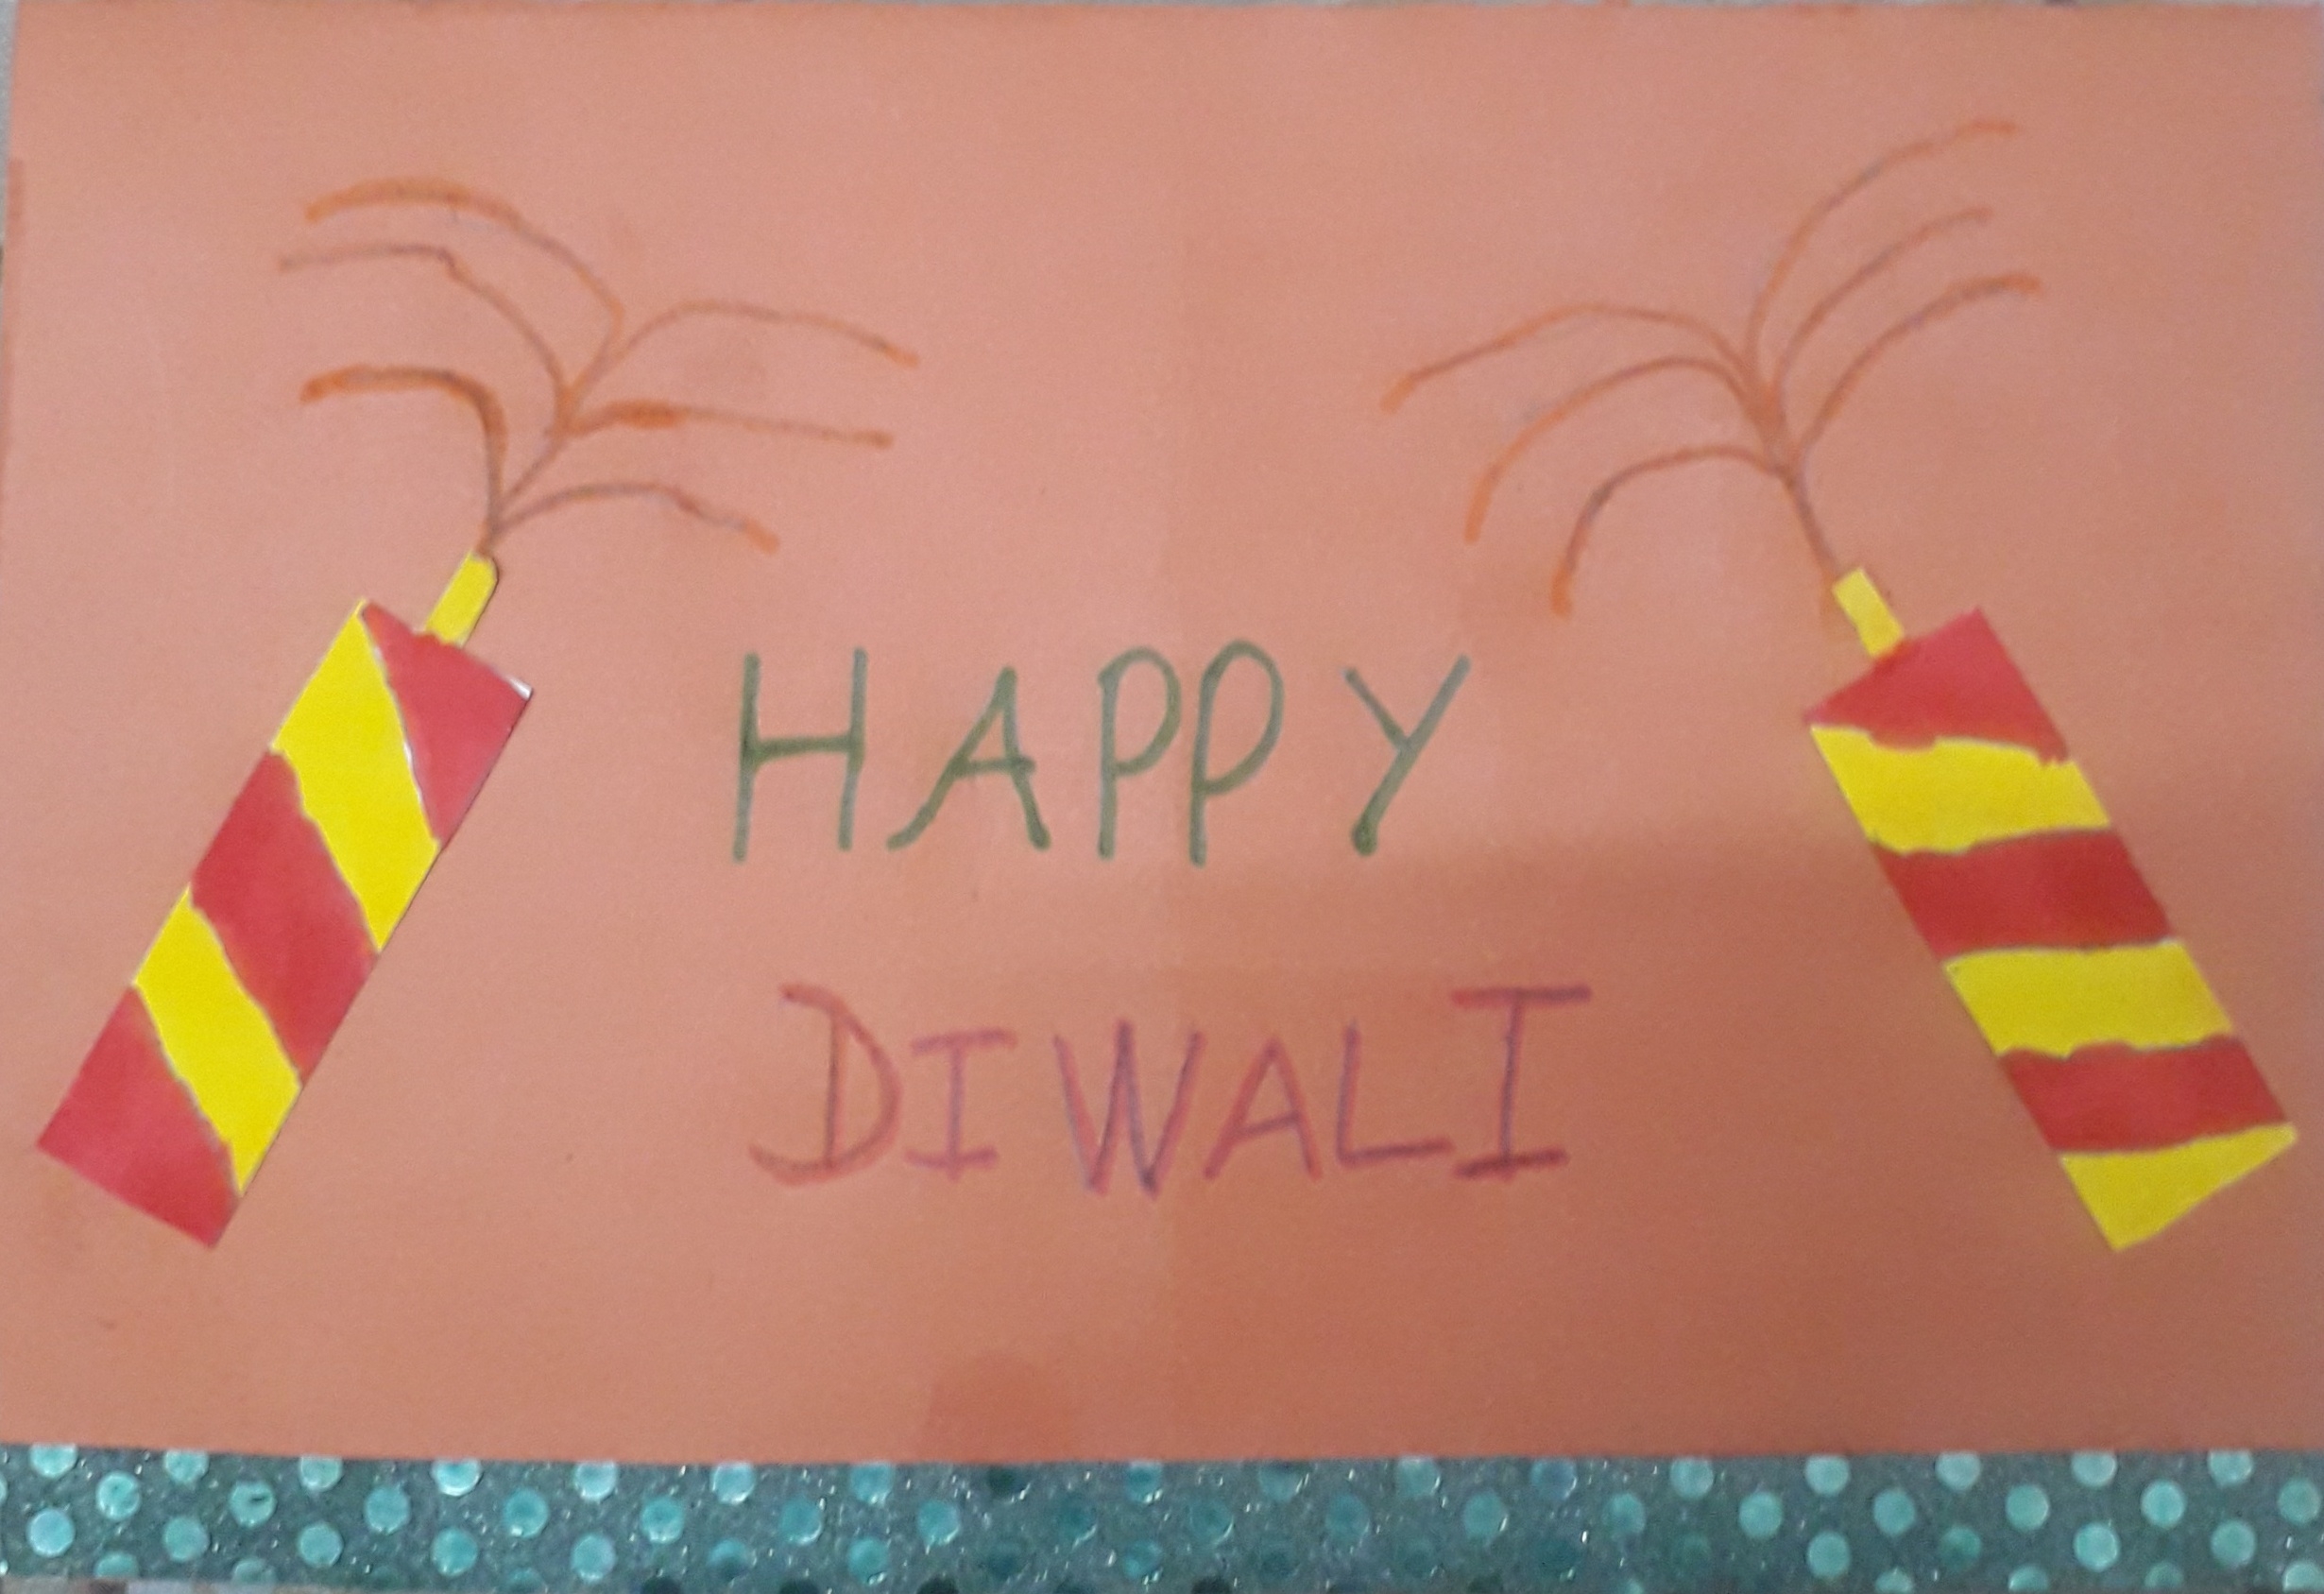 HAPPY
DIWALI